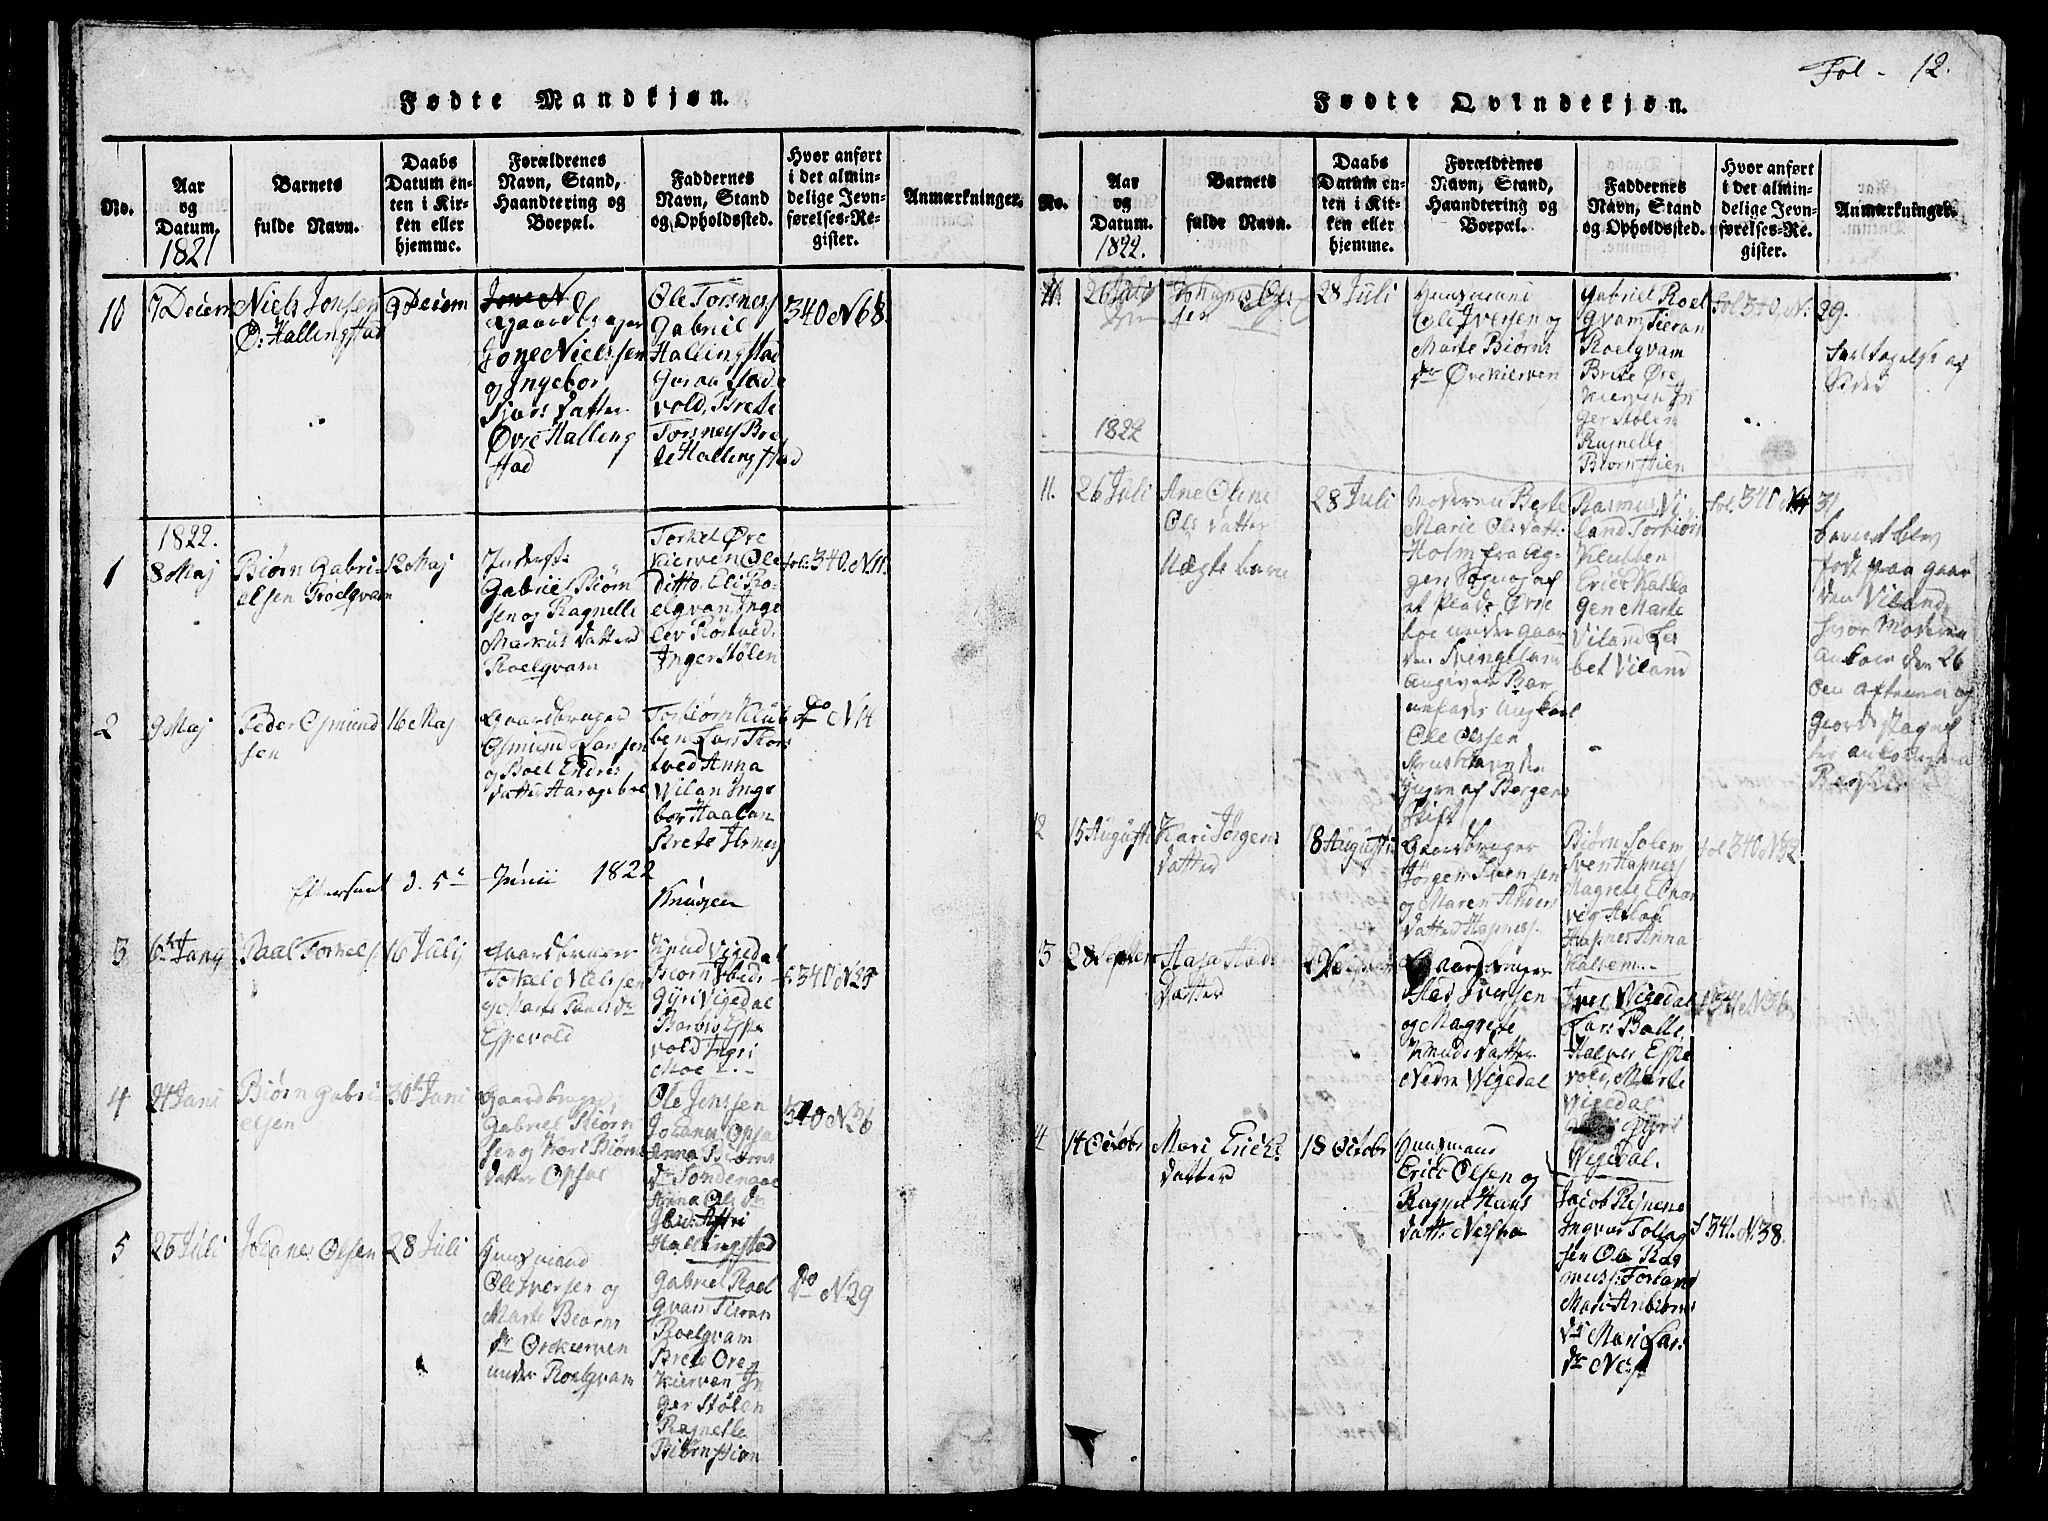 Fol - 12.
Fødte Mandkjøn.
No.
Aar
og
Datum.
1821
Barnets
fulde Navn.
Daabs
Datum en-
ten i Kir-
ken eller
hjemme.
Forældrenes
Navn, Stand,
Haandtering og
Boepæl.
Faddernes
Navn, Stand
og Opholdssted.
Hvor anført
i det almin-
delige Jevn-
førelses-Re-
gister.
Anmærkninger.
10
7 Decem
Niels Jonsen
Ø: Hallingstad
9 Decem
Gaardbruger
Jone Nielssen
og Ingebor
Siurs datter
Øvre Halling
stad
Ole Torsnes
Gabriel
Hallingstad
Guraa Stad
vold, Brete
Torsnes Bre
te Hallingstad
340 N 68.
1822.
1
8 Maj
Biørn Gabri-
elsen Roelqvam
12 Maj
Inderst:
Gabriel Biørn
sen og Ragnelle
Markus datter
Roelqvam
Torkel Øre
Kierven Ole
ditto. Eli Ro-
elqvam, Inge
lev Rørtved.
Inger Stølen
fol: 340. N. 11.
2
9 Maj
Peder Osmund
sen
16 Maj
Gaardbruger
Osmund Larsen
og Boel Endres
datter Harageboe
Torbiørn Klub
ben Lars Thors
tved Anna
Vilan Inge
bor Haalan
Brete Ilsnes
Do N 14
Efterseet d. 5te Junii 1822
Knudsen
3
Paal Torkels
16 Julij
Gaardbruger
Torkel Nielssen
og Marte Povels dr
Espevold
Knud Vigedal
Biørn Ibid:
Gyri Vigedal
Barbro Espe
vold Ingri
Moe
f. 340 N 25
4
24 Juni
Biørn Gabri
elsen
30te Juni
Gaardbruger
Gabriel Biørn
sen og Kari Biørns
datter Opsal
Ole Jenssen
Johanes Opsa
Anna Biørns
dr Søndenaae
Anna Ols dr
Ibid: Astri
Hallingstad
340 N 26
5
26 Juli
Johanes Olsen
28 Juli
Huusmand
Ole Iversen og
Marte Biørns
dr Ørekierven
under Roelqvam
Gabriel Roel
qvam Sieran
Roelqvam
Brete Øre
Kierven In
ger Stølen
Ragnelle
Biørnstien
Do N 29
Fødte Qvindekjøn.
No.
Aar
og
Datum.
1822.
Barnets
fulde Navn.
Daabs
Datum en-
ten i Kir-
ken eller
hjemme.
Forældrenes
Navn, Stand,
Haandtering og
Boepæl.
Faddernes
Navn, Stand
og Opholdssted.
Hvor anført
i det almin-
delige Jevn-
førelses-Re-
gister.
Anmærkninger.
26 Juli
Johanes Ols
sen
28 Juli
Huusmand
Ole Iversen og
Marte Biørns
dr Ørekierven
Gabriel Roel
qvam, Sieran
Roelqvam
Brete Øre
Kierven In
ger Stølen
Ragnelle
Biørnstien
fol 340, N. 29.
1822
11.
26 Juli
Ane Oline
Ols datter
Uægte barn
28 Juli
Moderen Berte
Marie Ols datt:
Holm fra Ag-
ger Sogn og af
et Plads Øvre
boe under gaar
den
angiven Bar
nefader Ungkarl
Ole Olssen
af Bergens
Stift
Rasmus Vi
land Torbiørn
Klubben
Erick
gen Marte
Viland Lis
bet Viland
fol 340 N 31
barnet blev
født paa gaar
den Viland,
hvor Moderen
ankom den 26
den aftenen og
12
15 Augusti
Kari Jørgens
datter
18 Augusti
Gaardbruger
Jørgen Svensen
og Maren Anders
datter Hapnes.
Biørn Solem
Sven Hapnes
Magrete Elvar
vig Aslau
Hapnes Anna
Kalvem
fol 340 N 32.
13
28 Septem
datter
29 Septem
Gaardbruger
Iversen
og Magrete
Knuds datter
Nedre Vigedal
Iver Vigedal
Lars Balle
Halver Espe
vold, Marte
Vigedal
Gyri
Vigedal.
f 341 N 36
14
14 Octobr
Mari Erichs
datter
18 Octobr
Huusmand
Erick Olsen og
Ragna Hans
datter Nessa
Jacob
Ingvar Tollag
sen Ole Ras
muss: Forland
Mari Anbiørns
dr Mari Lars
dr Ness
f 341. N. 38.